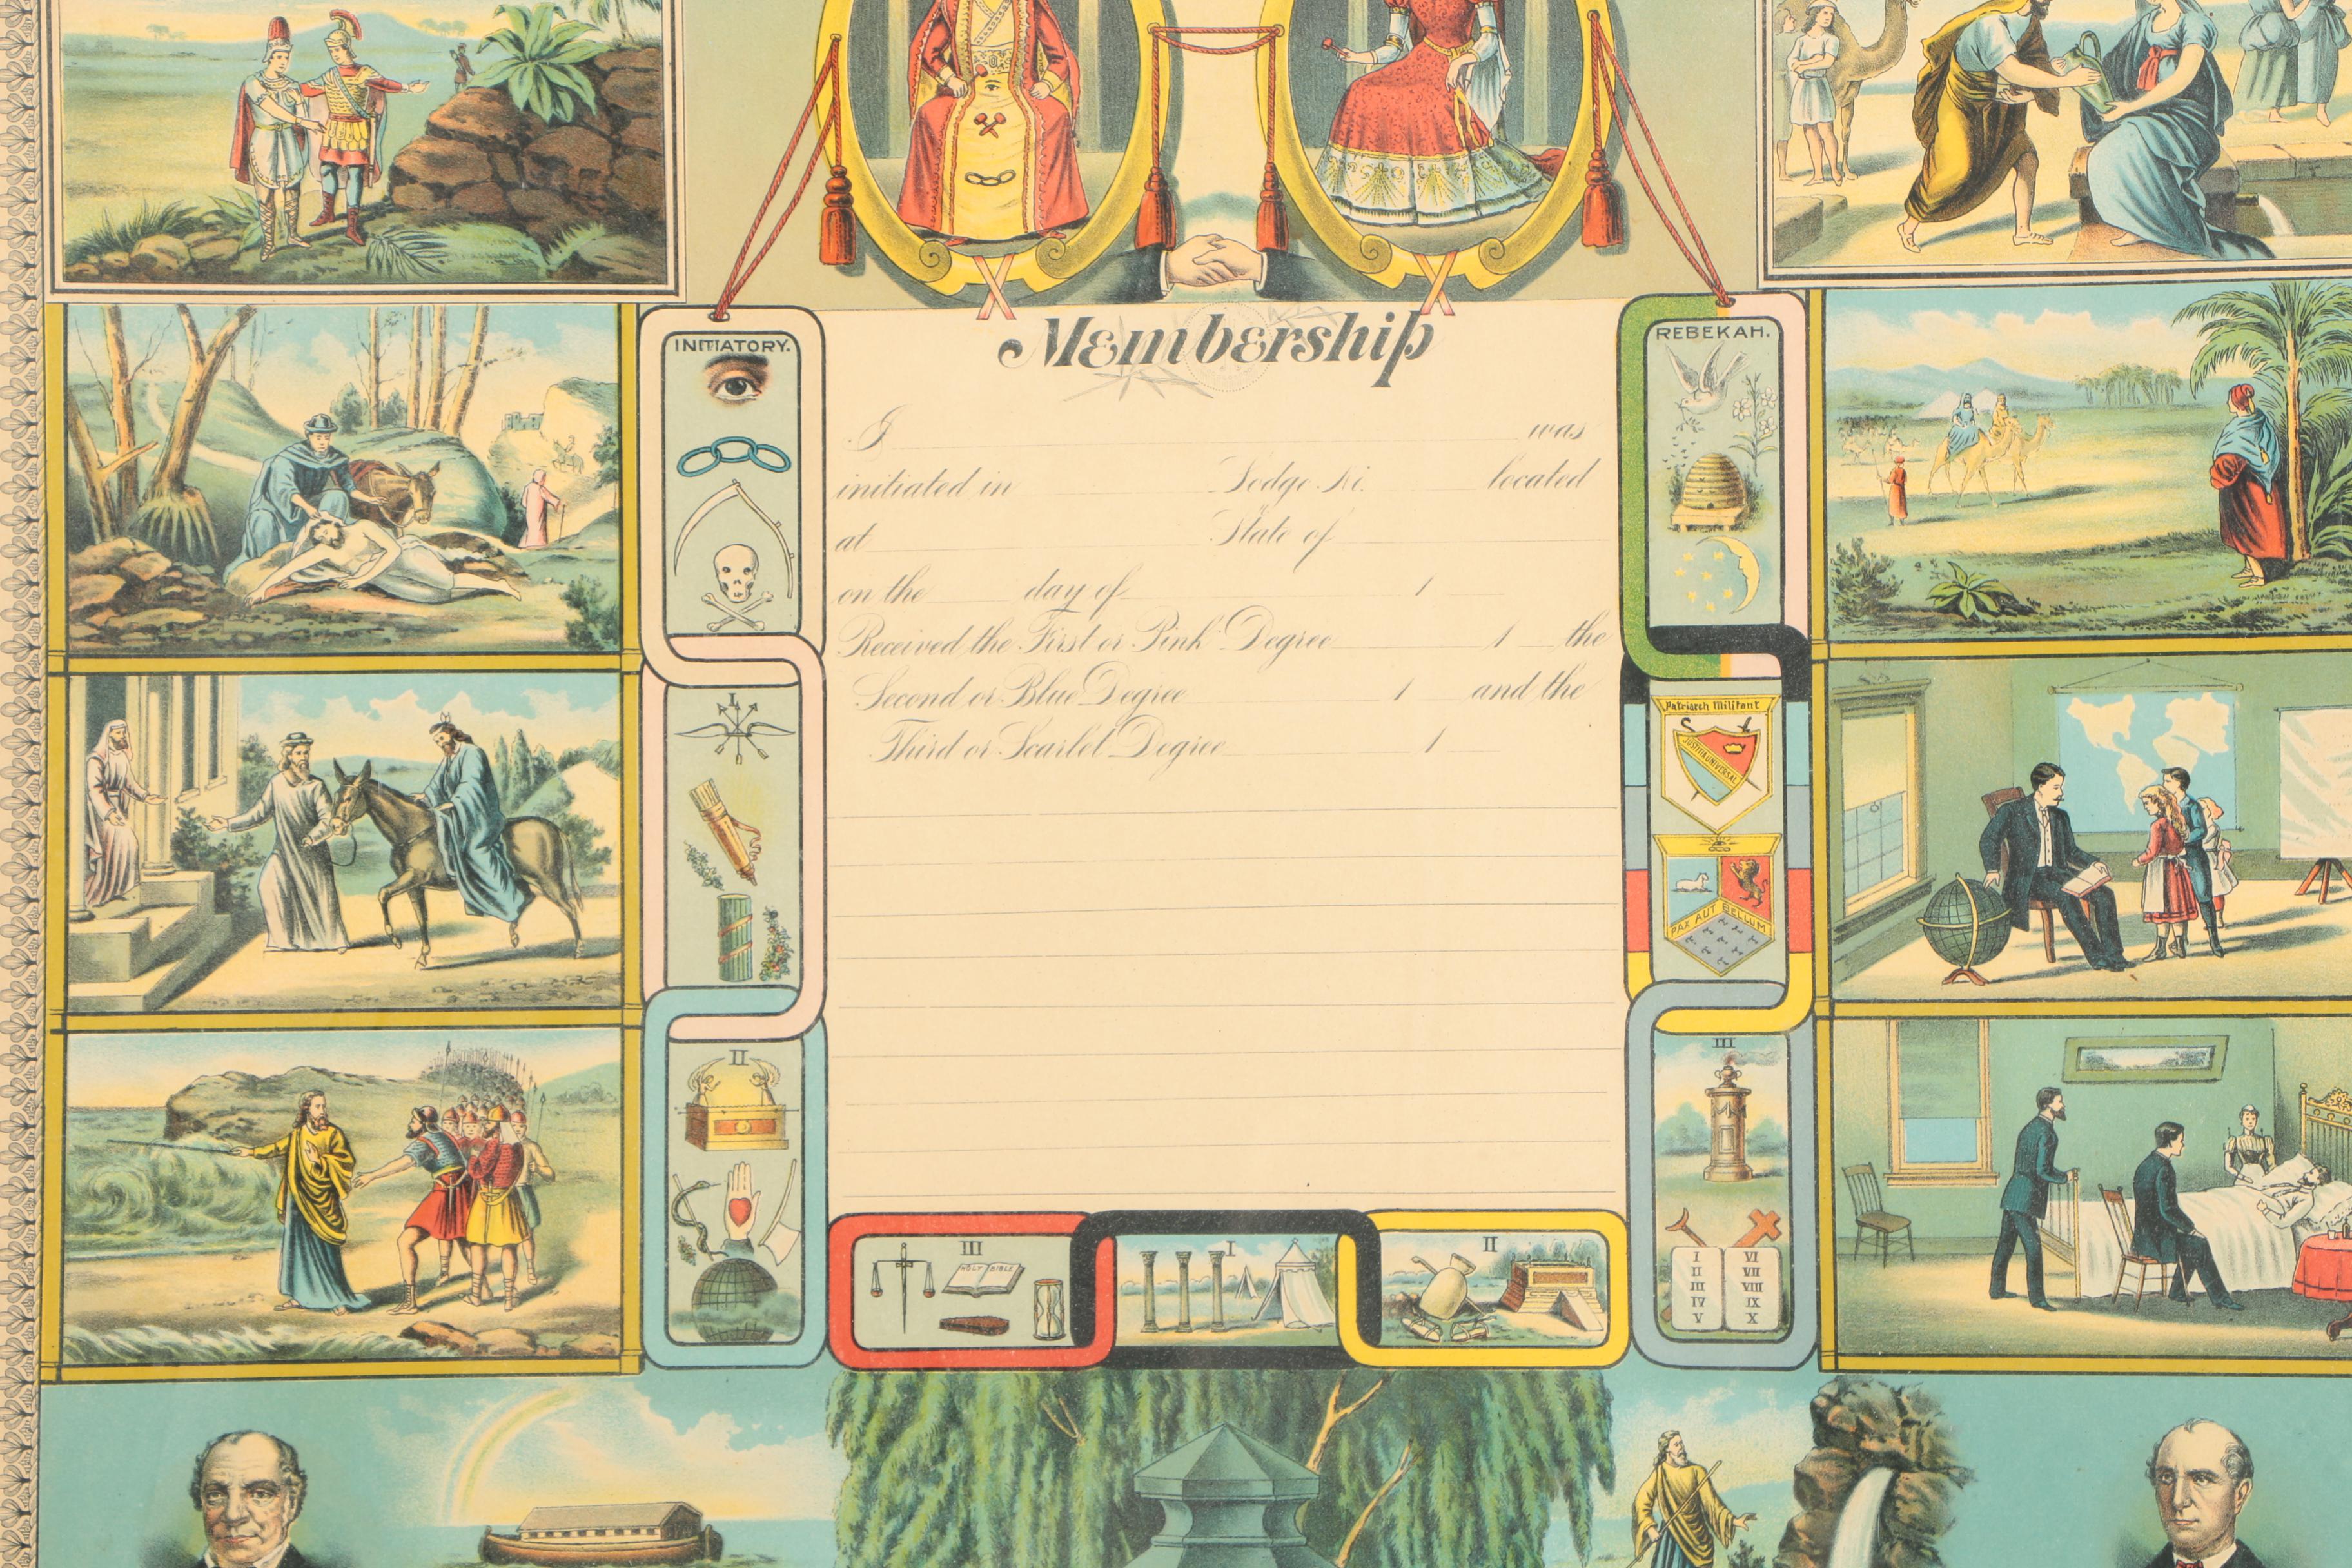 Membership
INITIATORY.
REBEKAH.
I was
initiated in Lodge No. located
at State of
on the day of 1
Received the First or Pink Degree 1 the
Second or Blue Degree 1 and the
Third or Scarlet Degree 1
I
Patriarch Militant
JUSTITIA UNIVERSAL
PAX AUT BELLUM
II
III
I VI
II VII
III VIII
IV IX
V X
III
HOLY BIBLE
I
II